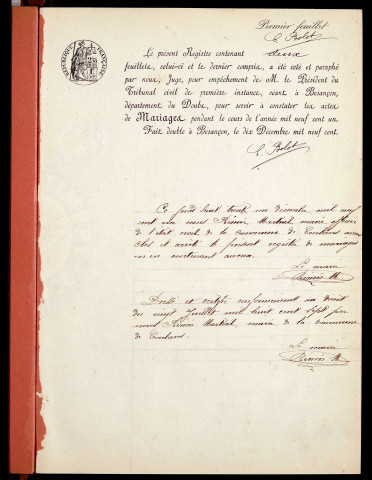 Premier feuillet
C. Bolot
Le présent Registre contenant deux
feuillets, celui-ci et le dernier compris, a été coté et paraphé
par nous, Juge, pour empêchement de M. le Président du
Tribunal civil de première instance, séant à Besançon,
département du Doubs, pour servir à constater les actes
de Mariages pendant le cours de l'année mil neuf cent un.
Fait double à Besançon, le dix Décembre mil neuf cent.
C. Bolot
Ce jourd'hui trente un décembre mil neuf
cent un nous Martial maire officier
de l'état civil de la Commune de avons
clos et arrêté le présent registre de mariages
n'en contenant aucun.
Le maire
M
Arrêté et certifié conformément au décret
du vingt Juillet mil huit cent sept par
nous Martial, maire de la commune
de
Le maire
M
RÉPUBLIQUE FRANÇAISE